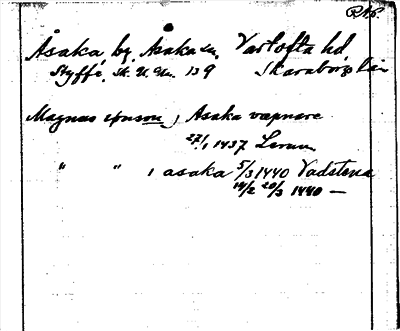 R.A.P.
Åsaka by, Åsaka sn, Vartofta hd
Styffe, Sk. U. Un. 139 Skaraborgs län
Magnus i Åsaka væpnare
27/1 1437 Lerum
" " i asaka 5/3 1440 Vadstena
14/2 20/3 1440 —